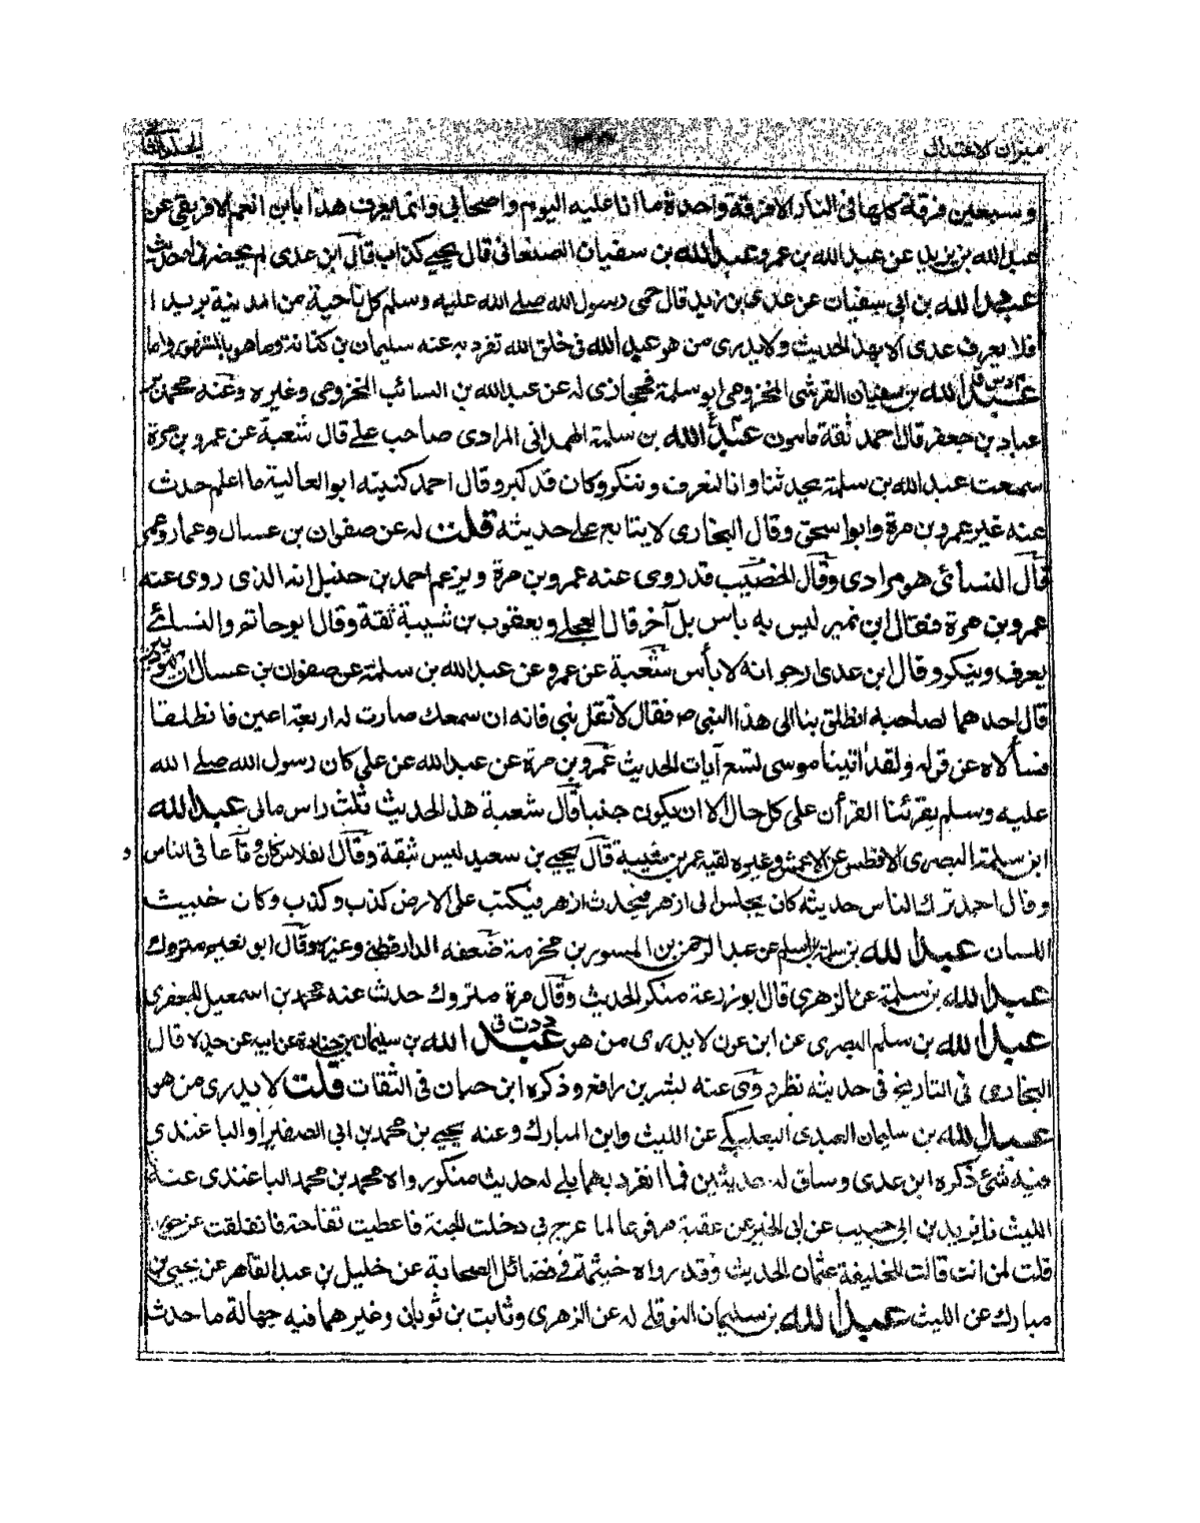 ميزان الاعتدال
الجلد الثاني
وسبعين فرقة كلها فى النار الا فرقة واحدة ما انا عليه اليوم واصحابي وانما يعرف هذا بابن انعم الافريقي عن
عبد الله بن يزيد عن عبد الله بن عمرو عبد الله بن سفيان الصنعانى قال يحيى كذاب قال ابن عدى لم يحضرنى له حديث
عبد الله بن ابي سفيان عن عدى بن زيد قال حمى رسول الله صلى الله عليه وسلم كل ناحية من المدينة بريدا
فلا يعرف عدى الا بهذا الحديث ولا يدرى من هو عبد الله فى خلق الله تفرد به عنه سليمان بن كنانة وما هو بالمشهور واما
عبد الله بن سفيان القرشى المخزومى ابو سلمة فحجازى له عن عبد الله بن السائب المخزومى وغيره وعنه محمد بن
عباد بن جعفر قال احمد ثقة مامون عبد الله بن سلمة الهمدانى المرادى صاحب على قال شعبة عن عمرو بن مرة
سمعت عبد الله بن سلمة يحدثنا وانا لنعرف وننكر وكان قد كبر وقال احمد كنيته ابو العالية ما اعلم حدث
عنه غير عمرو بن مرة وابو اسحق وقال البخارى لا يتابع على حديثه قلت له عن صفوان بن عسال وعمار وعمر
قال النسائى هو مرادى وقال الخطيب قد روى عنه عمرو بن مرة ويزعم احمد بن حنبل انه الذى روى عنه
عمرو بن مرة فقال ابن نمير ليس به باس بل آخر قال العجلى ويعقوب بن شيبة ثقة وقال ابو حاتم والنسائے
يعرف وينكر وقال ابن عدى ارجو انه لا بأس شعبة عن عمرو عن عبد الله بن سلمة عن صفوان بن عسال ان يهوديين
قال احدهما لصاحبه انطلق بنا الى هذا النبى ص فقال لا تقل نبى فانه ان سمعك صارت له اربعة اعين فانطلقا
فسألاه عن قوله ولقد اتينا موسى تسع آيات الحديث عمرو بن مرة عن عبد الله عن على كان رسول الله صلے الله
عليه وسلم يقرئنا القرأن على كل حال الا ان يكون جنبا قال شعبة هذا الحديث ثلث راس مالى عبد الله
ابن سلمة البصرى الافطس عن الاعمش وغيره لقيه عمر بن شيبة قال يحيے بن سعيد ليس بثقة وقال الفلاس كان وقاعا فى الناس
وقال احمد ترك الناس حديثه كان يجلس الى ازهر فيحدث ازهر فيكتب على الارض كذب وكذب وكان خبيث
اللسان عبد الله بن سلمة بن اسلم عن عبد الرحمن بن المسور بن مخرمة ضعفه الدارقطنى وغيره وقال ابو نعيم متروك
عبد الله بن سلمة عن الزهرى قال ابو زرعة منكر الحديث وقال مرة متروك حدث عنه محمد بن اسمعيل الجعفرى
عبد الله بن سلم البصرى عن ابن عون لا يدرى من هو عبد الله بن سليمان بن جنادة عن ابيه عن جده قال
البخارى فى التاريخ فى حديثه نظر روى عنه بشر بن رافع وذكره ابن حبان فى الثقات قلت لا يدرى من هو
عبد الله بن سليمان العبدى البعلبكے عن الليث وابن المبارك وعنه يحيے بن محمد بن ابى الصفيرا والباغندى
فيه شئ ذكره ابن عدى وساق له حديثين فما انفرد بهما بلے له حديث منكر رواه محمد بن محمد الباغندى عنه
الليث نا يزيد بن ابى حبيب عن ابى الخير عن عقبة مرفوعا لما عرج بى دخلت الجنة فاعطيت تفاحة فانفلقت عن حور
قلت لمن انت قالت للخليفة عثمان الحديث وقد رواه خيثمة فى فضائل الصحابة عن خليل بن عبد القاهر عن يحيى بن
مبارك عن الليث عبد الله بن سليمان النوفلے له عن الزهرى وثابت بن ثوبان وغيرهما فيه جهالة ما حدث